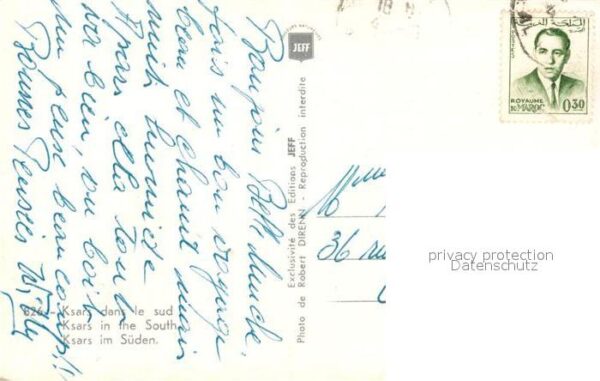 Bonjour
fais un bon voyage
beau et chaud mais
nuit humide
Apart cela tout
va bien, on boit
un peuse beaucoup!!
Bonnes Pensées Willy
JEFF
Exclusivité des Editions JEFF
Photo de Robert DIRENN - Reproduction interdite
826 - Ksars dans le sud
Ksars in the South.
Ksars im Süden.
Mme
36 rue
ROYAUME
DU MAROC
0,30
privacy protection
Datenschutz